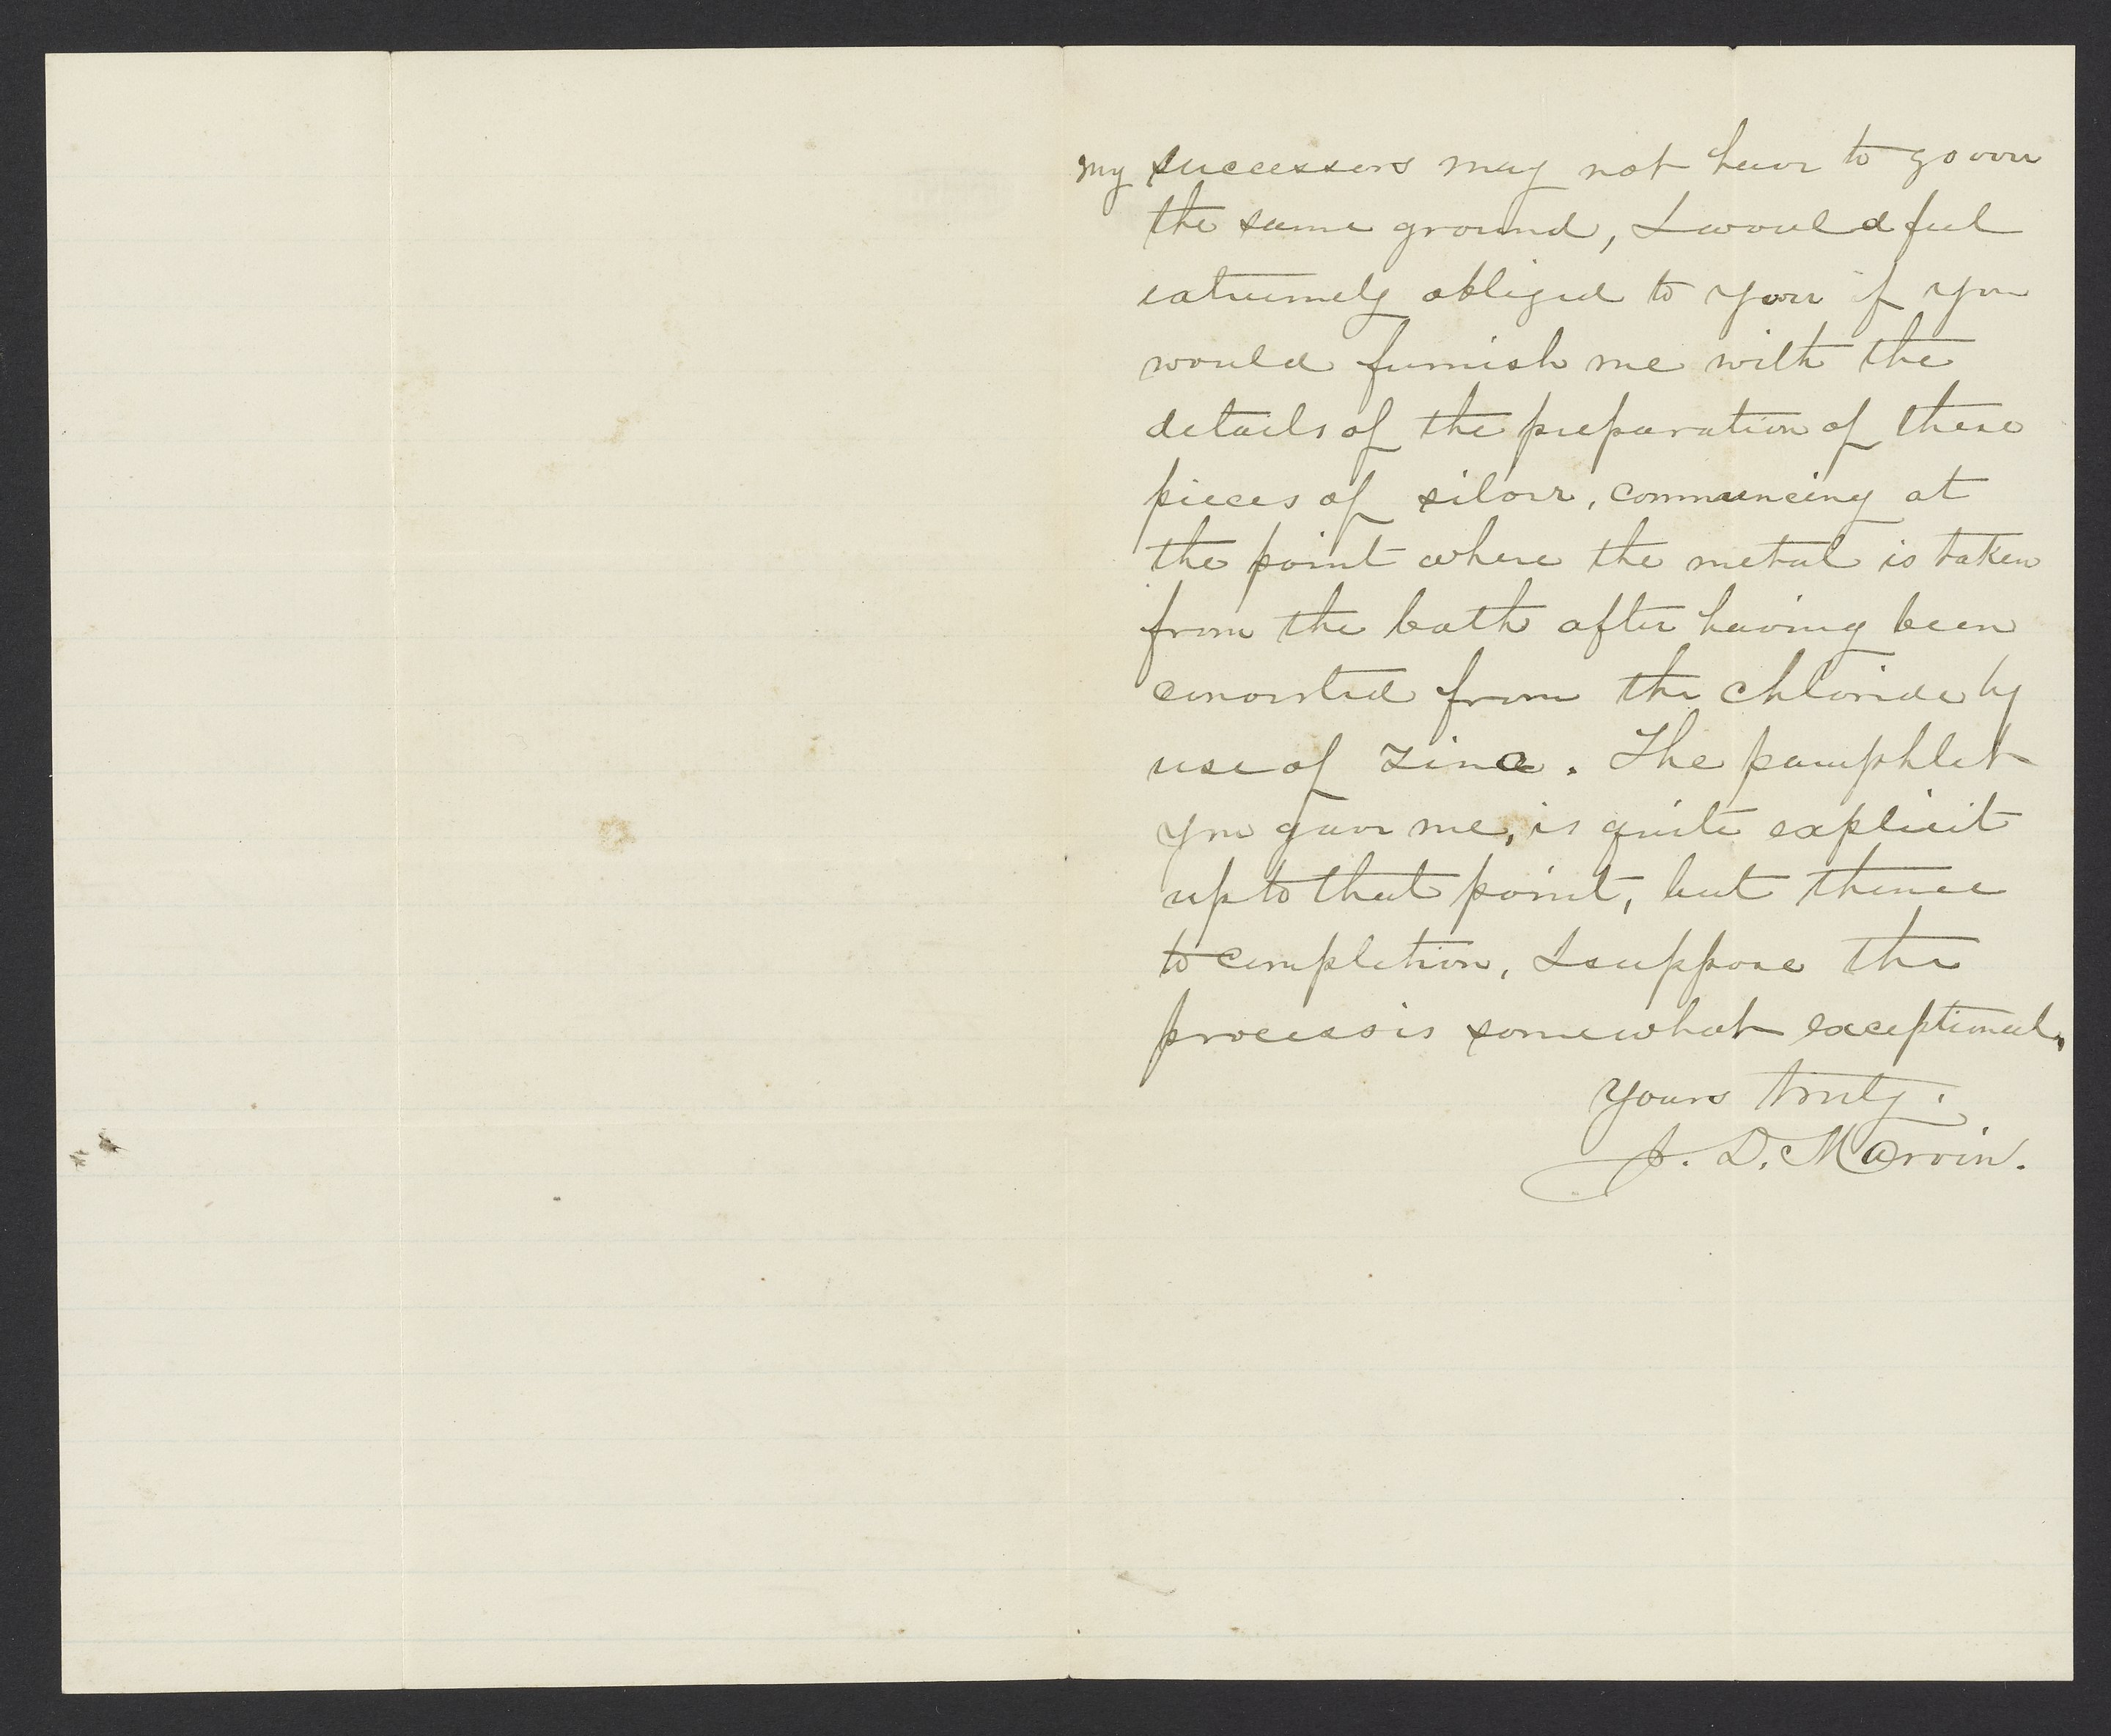 my successors may not have to go over
the same ground, I would feel
extremely obliged to you if you
would furnish me with the
details of the preparation of these
pieces of silver, commencing at
the point where the metal is taken
from the bath after having been
converted from the chloride by
use of zinc. The pamphlet
you gave me, is quite explicit
up to that point, but thence
to completion, I suppose the
process is somewhat exceptional.
Yours truly.
J. D. Marvin.